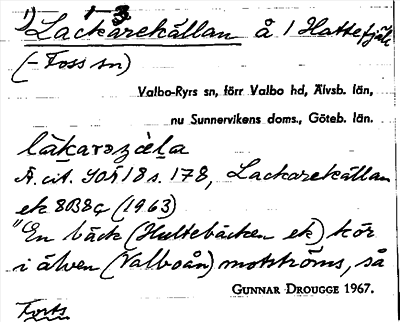 1) 1-3
Lackarekällan å 1 Hattefjäll
(-Foss sn)
Valbo-Ryrs sn, förr Valbo hd, Älvsb. län,
nu Sunnervikens doms., Göteb. län.
läkarəzæla
A. cit. SOÄ 18 s. 178, Lackarekällan
ek 8B8g (1963)
"En bäck (Hultebäcken ek) kör
i älven (Valboån) motströms, så
GUNNAR DROUGGE 1967.
Forts